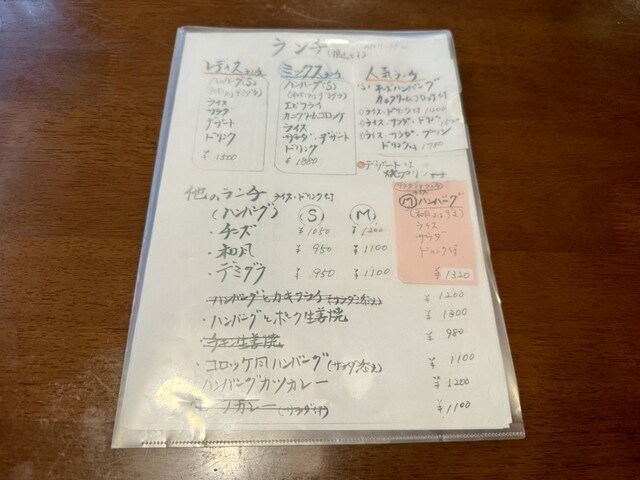 ランチ(税込み)
レディスランチ
ハンバーグ(S)
ライス
サラダ
デザート
ドリンク
¥1300
ミックスランチ
ハンバーグ(S)
エビフライ
カニクリームコロッケ
ライス
サラダ・デザート
ドリンク
¥1880
人気ランチ
チーズハンバーグ
カニクリームコロッケ付
ライス・ドリンク付
ライス・サラダ・ドリンク
ライス・サラダ・プリン
ドリンク付 1700
デザートは
焼プリン
他のランチ ライス・ドリンク付
(ハンバーグ) S M
・チーズ ¥1050 ¥1200
・和風 ¥950 ¥1100
・デミグラ ¥950 ¥1100
Mハンバーグ
ライス
サラダ
ドリンク付
¥1320
ハンバーグとカキフライ(サラダ添え) ¥1200
・ハンバーグとポーク生姜焼 ¥1300
・チキン生姜焼 ¥980
・コロッケ風ハンバーグ(サラダ添え) ¥1100
ハンバーグカツカレー ¥1200
カレー(サラダ付) ¥1100